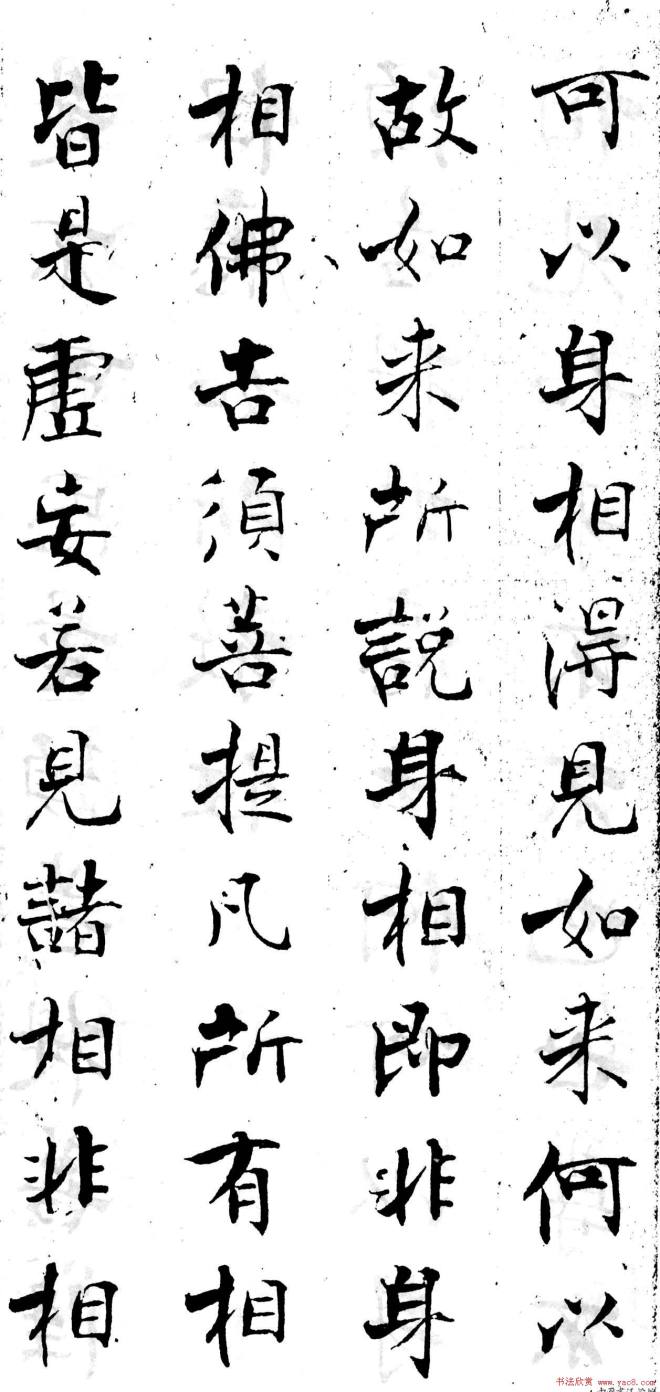 可以身相得見如来何以
故如来所說身相即非身
相佛告須菩提凡所有相
皆是虛妄若見諸相非相
书法欣赏 www.yac8.com